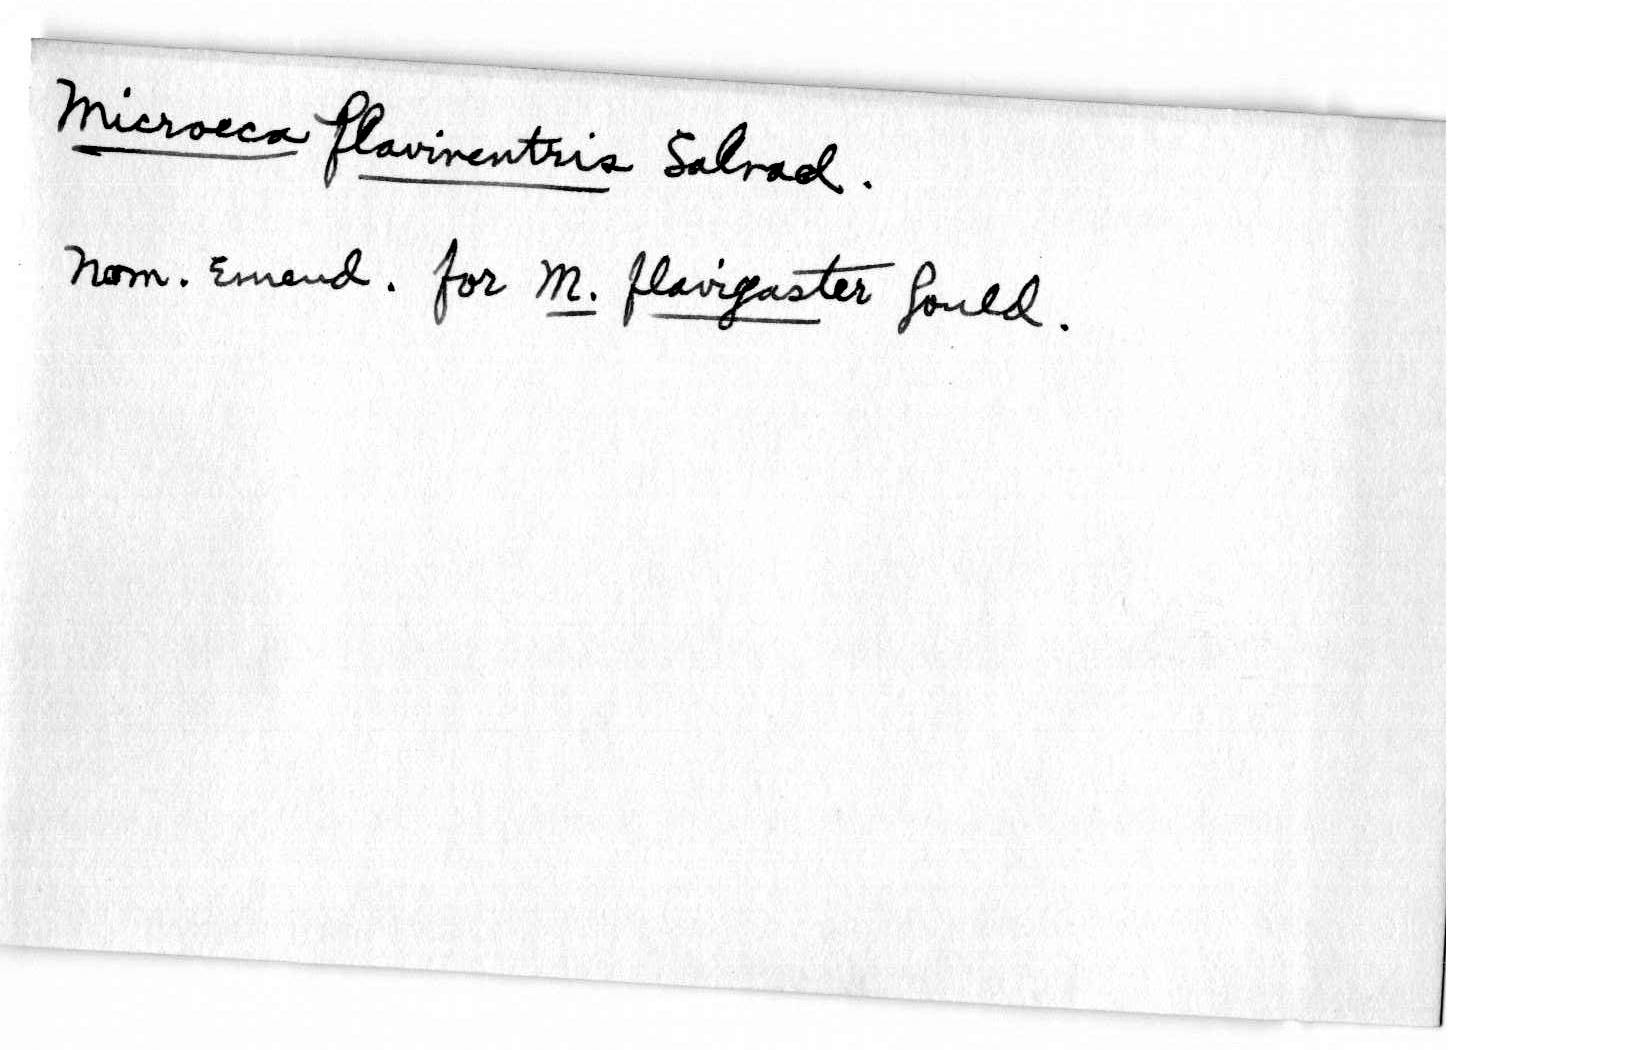 Microeca flaviventris Salvad.
Nom. Emend. for M. flavigaster Gould.